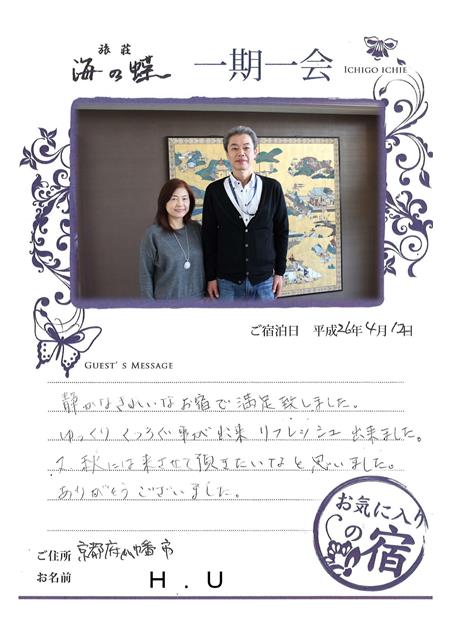 旅荘
海の蝶
一期一会
ICHIGO ICHIE
ご宿泊日 平成26年4月12日
GUEST'S MESSAGE
静かなきれいなお宿で満足致しました。
ゆっくりくつろぐ事が出来リフレッシュ出来ました。
又秋には来させて頂きたいなと思いました。
ありがとうございました。
お気に入り
の宿
ご住所 京都府八幡市
お名前 H.U